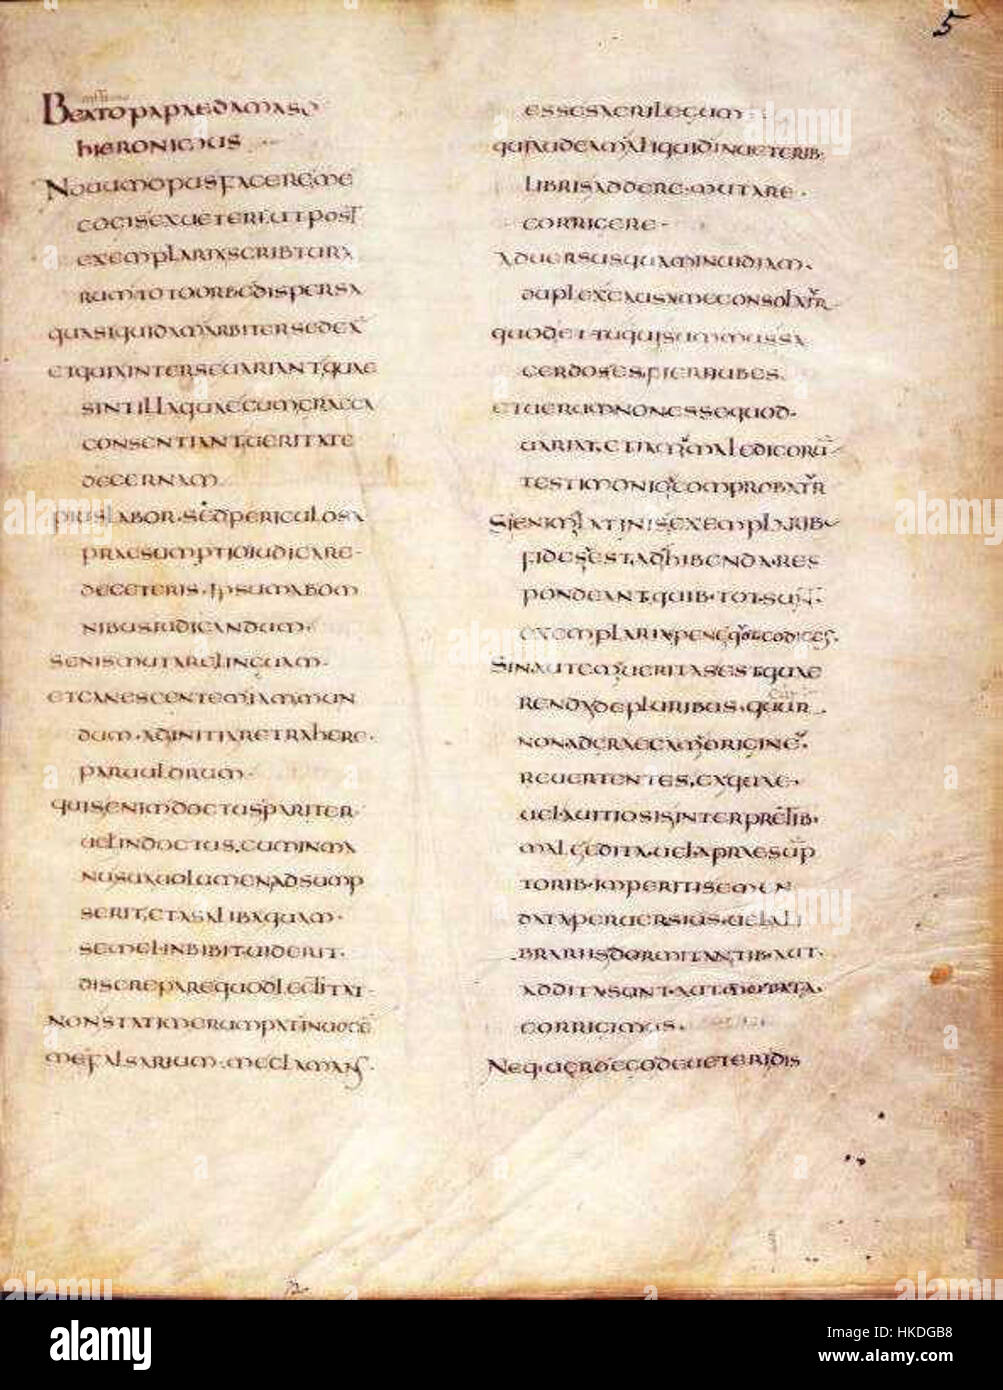 5
BEATO PAPAE DAMASO
HIERONIMUS
NOUUM OPUS FACERE ME
COGIS EX UETERE UT POST
EXEMPLARIA SCRIBTURA
RUM TOTO ORBE DISPERSA
QUASI QUIDAM ARBITER SEDEA
ET QUIA INTER SE UARIANT QUAE
SINT ILLA QUAE CUM GRAECA
CONSENTIANT UERITATE
DECERNAM
PIUS LABOR · SED PERICULOSA
PRAESUMPTIO IUDICARE ·
DE CETERIS · IPSUM AB OM
NIBUS IUDICANDUM ·
SENIS MUTARE LINGUAM ·
ET CANESCENTEM IAM MUN
DUM · AD INITIA RETRAHERE ·
PARUULORUM ·
QUIS ENIM DOCTUS PARITER ·
UEL INDOCTUS · CUM IN MA
NUS UOLUMEN ADSUMP
SERIT · ET A SALIBA QUAM ·
SEMEL INBIBIT UIDERIT ·
DISCREPARE QUOD LECTITAT ·
NON STATIM ERUMPAT IN UOCĒ
ME FALSARIUM · ME CLAMANS ·
ESSE SACRILEGUM
QUI AUDEAM ALIQUID IN UETERIB·
LIBRIS ADDERE · MUTARE ·
CORRIGERE ·
ADUERSUS QUAM INUIDIAM ·
DUPLEX CAUSA ME CONSOLATR
QUOD ET TU QUI SUMMUS SA
CERDOS ES · FIERI IUBES ·
ET UERUM NON ESSE QUOD ·
UARIAT · ETIAM MALEDICORŪ
TESTIMONIO COMPROBATR
SI ENIM LATINIS EXEMPLARIB·
FIDES EST ADHIBENDA · RES
PONDEANT QUIB · TOT SUNT
EXEMPLARIA PENE QUOT CODICES ·
SIN AUTEM UERITAS EST QUAE
RENDA DE PLURIBUS · QUUR
NON AD GRAECAM ORIGINĒ
REUERTENTES · EA QUAE ·
UEL A UITIOSIS INTERPRETIB·
MALE EDITA · UEL A PRAESUMP
TORIB · IMPERITIS EMEN
DATA PERUERSIUS · UEL A LI
BRARIIS DORMITANTIB · AUT ·
ADDITA SUNT · AUT MUTATA ·
CORRIGIMUS ·
NEQ · UERO EGO DE UETERI DIS
alamy
HKDGB8
www.alamy.com